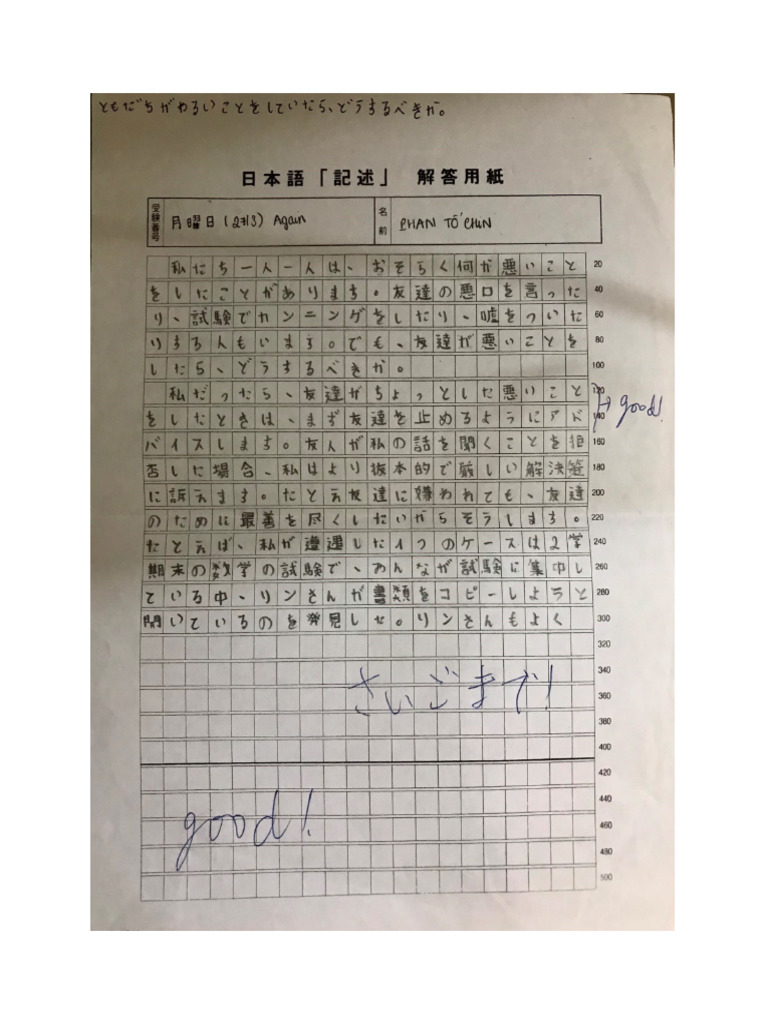 ともだちがわるいことをしていたら、どうするべきか。
日本語「記述」 解答用紙
受験番号 月曜日(2권13) Again 名前 PHAN TỐ CHIN
私たち一人一人は、おそらく何か悪いこと 20
をしたことがあります。友達の悪口を言った 40
り、試験でカンニングをしたり、嘘をついた 60
りする人もいます。でも、友達が悪いことを 80
したら、どうするべきか。 100
私だったら、友達がちょっとした悪いこと 120
をしたときは、まず友達を止めるようにアド 140
good!
バイスします。友人が私の話を聞くことを拒 160
否した場合、私はより抜本的で厳しい解決策 180
に訴えます。たとえ友達に嫌われても、友達 200
のために最善を尽くしたいからそうします。 220
たとえば、私が遭遇した1つのケースは2学 240
期末の数学の試験で、みんなが試験に集中し 260
ている中、リンさんが書類をコピーしようと 280
開いているのを発見しせ。リンさんもよく 300
320
さいごまで! 340
360
380
400
420
good! 440
460
480
500